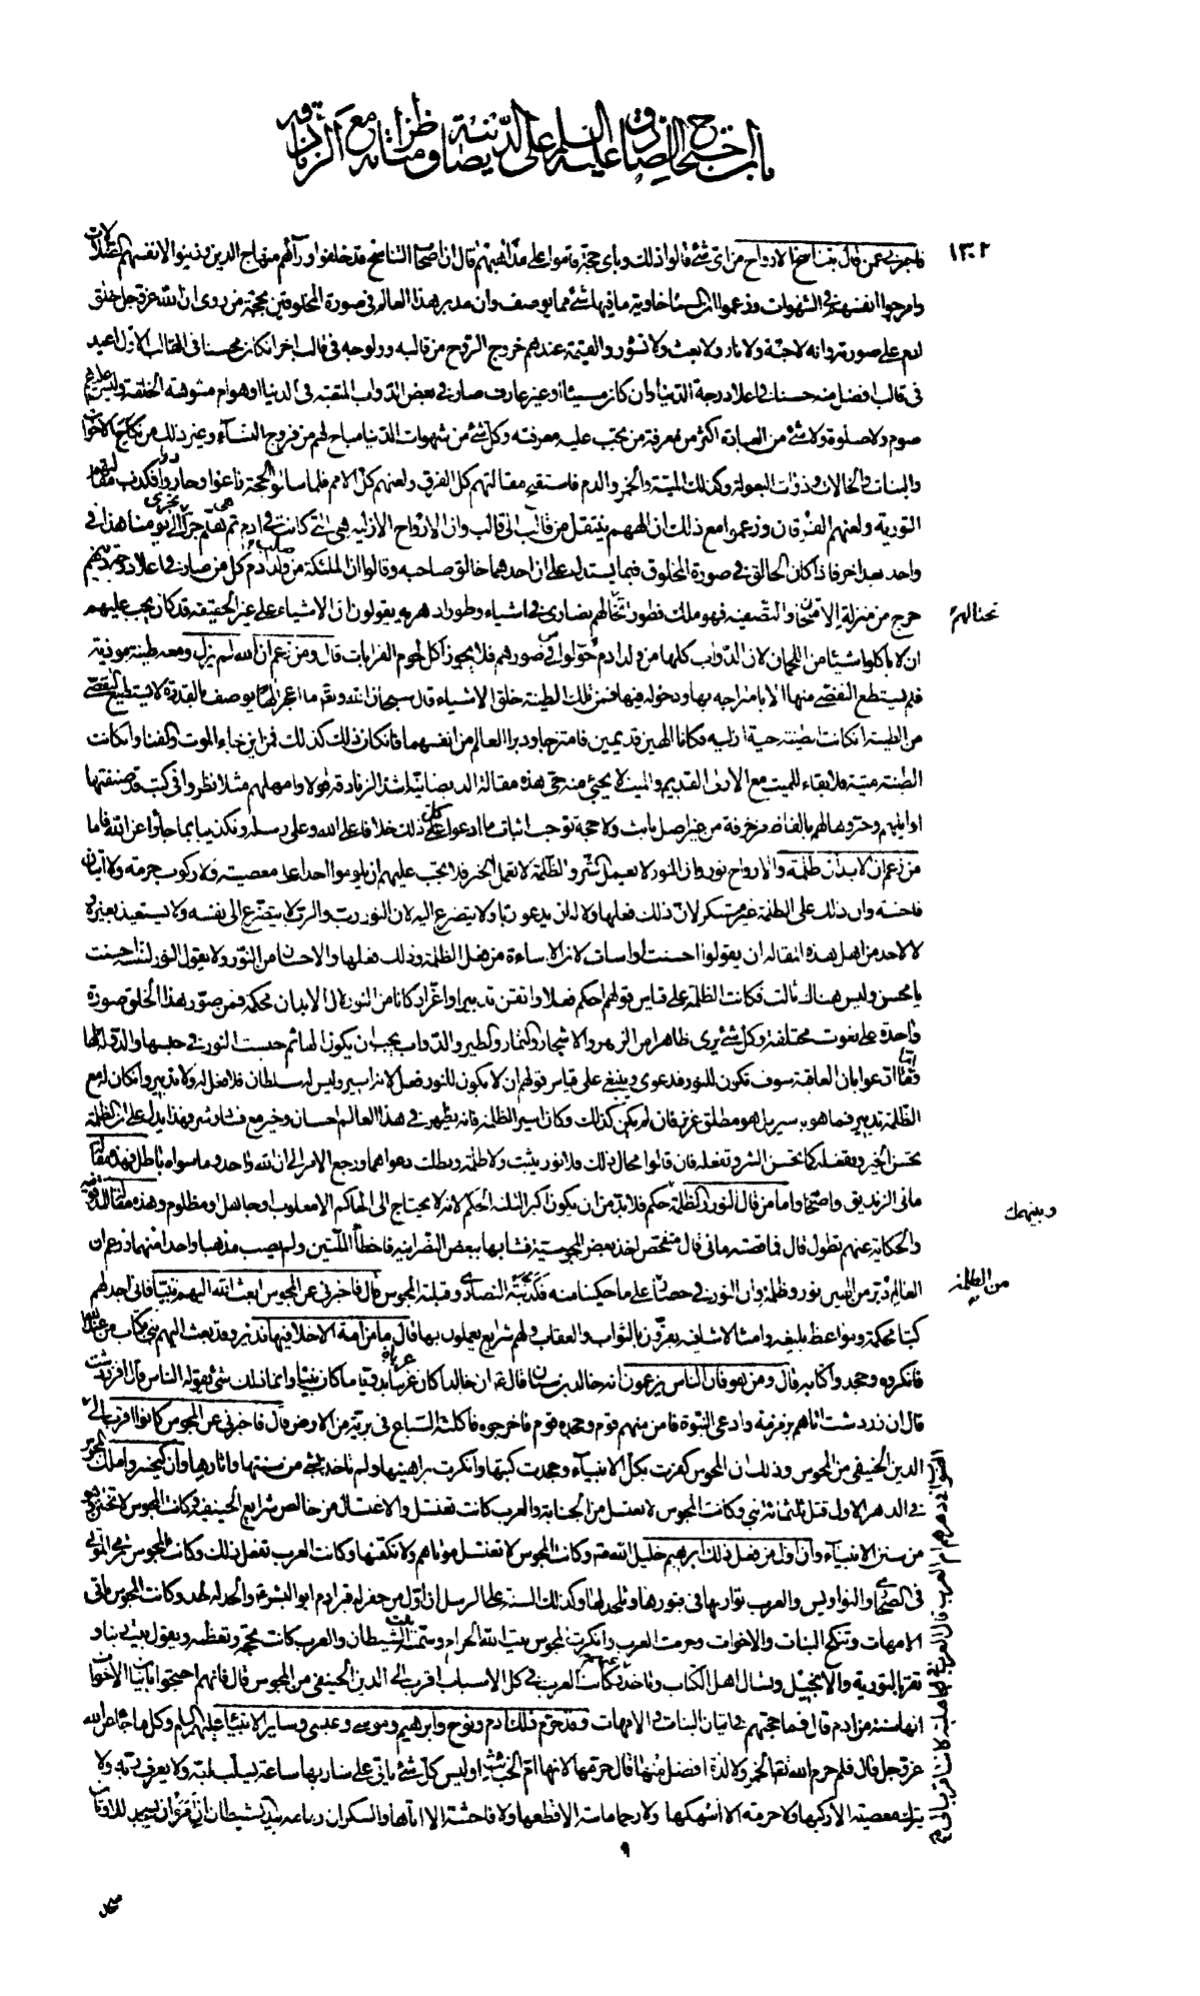 باب احتجاج الصادق عليه السلم على الديصاني ومناظراته مع الزنادقة
١٣٠٢
فاخبرني عمن قال بتناسخ الارواح من اى شئ قالوا ذلك وباى حجة قاموا على مذاهبهم قال ان اصحاب التناسخ قد خلفوا ورآئهم منهاج الدين وزينوا لانفسهم الضلالات
وامرجوا انفسهم فى الشهوات وزعموا ان السماء خاوية ما فيها شئ مما يوصف وان مدبر هذا العالم فى صورة المخلوقين بحجة من روى ان الله عز وجل خلق
ادم على صورته وانه لا جنة ولا نار ولا بعث ولا نشور والقيمة عندهم خروج الروح من قالبه وولوجه فى قالب اخر ان كان محسنا فى القالب الاول اعيد
فى قالب افضل منه حسنا فى اعلا درجة الدنيا وان كان مسيئا او غير عارف صار فى بعض الدواب المتعبة فى الدنيا او هوام مشوهة الخلقة وليس عليهم
صوم ولا صلوة ولا شئ من العبادة اكثر من معرفة من يجب عليه معرفته وكل شئ من شهوات الدنيا مباح لهم من فروج النسآء وغير ذلك من نكاح الاخوات
والبنات والخالات وذوات البعولة وكذلك الميتة والخمر والدم فاستقبح مقالتهم كل الفرق ولعنهم كل الامم فلما سالوا الحجة زاغوا وحادوا فكذب مقالتهم
التورية ولعنهم الفرقان وزعموا مع ذلك ان الههم ينتقل من قالب الى قالب وان الارواح الازلية هى التى كانت فى ادم ثم هلم جرا الى يومنا هذا فى
واحد بعد اخر فاذا كان الخالق فى صورة المخلوق فبما يستدل على ان احدهما خالق صاحبه وقالوا ان الملئكة من ولد ادم كل من صار فى اعلا درجة دينهم
خرج من منزلة الامتحان والتصفية فهو ملك فطورا تخالهم نصارى فى اشياء وطورا دهرية يقولون ان الاشياء على غير الحقيقة قد كان يجب عليهم
ان لا ياكلوا شيئا من اللحمان لان الدواب كلها من ولد ادم حولوا فى صورهم فلا يجوز اكل لحوم القرابات قال ومن زعم ان الله لم يزل ومعه طينة موذية
فلم يستطع التفصى منها الا بامتزاجه بها ودخوله فيها فمن تلك الطينة خلق الاشياء قال سبحان الله وتعالى ما اعجز الها يوصف بالقدرة لا يستطيع التفصى
من الطينة ان كانت الطينة حية ازلية فكانا الهين قديمين فامتزجا ودبرا العالم من انفسهما فان كان ذلك كذلك فمن اين جاء الموت والفنا وان كانت
الطينة ميتة فلا بقاء للميت مع الازلى القديم والميت لا يجئ منه حى هذه مقالة الديصانية اشد الزنادقة قولا وامهلهم مثلا نظروا فى كتب قد صنفتها
اوايلهم وحبروها لهم بالفاظ مزخرفة من غير اصل ثابت ولا حجة توجب اثبات ما ادعوا كل ذلك خلافا على الله وعلى رسله وتكذيبا بما جاؤا عن الله فاما
من زعم ان الابدان ظلمة والارواح نور وان النور لا يعمل الشر والظلمة لا تعمل الخير فلا يجب عليهم ان يلوموا احدا على معصية ولا ركوب حرمة ولا اتيان
فاحشة وان ذلك على الظلمة غير مستنكر لان ذلك فعلها ولا له ان يدعو ربا ولا يتضرع اليه لان النور رب والرب لا يتضرع الى نفسه ولا يستعيذ بغيره
ولا لاحد من اهل هذه المقالة ان يقول احسنت او اسات لان الاساءة من فعل الظلمة وذلك فعلها والاحسان من النور ولا يقول النور لنفسه احسنت
يا محسن وليس هناك ثالث فكانت الظلمة على قياس قولهم احكم فعلا واتقن تدبيرا واعز اركانا من النور لان الابدان محكمة فمن صور هذا الخلق صورة
واحدة على نعوت مختلفة وكل شئ يرى ظاهرا من الزهر والاشجار والثمار والطير والدواب يجب ان يكون الها ثم حبست النور فى حبسها والدولة لها
واما ما ادعوا بان العاقبة سوف تكون للنور فدعوى وينبغى على قياس قولهم ان لا يكون للنور فعل لانه اسير وليس له سلطان فلا فعل له ولا تدبير وان كان له مع
الظلمة تدبير فما هو باسير بل هو مطلق عزيز فان لم يكن كذلك وكان اسير الظلمة فانه يظهر فى هذا العالم احسان وخير مع فساد وشر فهذا يدل على ان الظلمة
تحسن الخير وتفعله كما تحسن الشر وتفعله فان قالوا محال ذلك فلا نور يثبت ولا ظلمة وبطلت دعواهما ورجع الامر الى ان الله واحد وما سواه باطل فهذه مقالة
مانى الزنديق واصحابه واما من قال النور والظلمة بينهما حكم فلا بد من ان يكون اكبر الثلثة الحكم لانه لا يحتاج الى الحاكم الا مغلوب او جاهل او مظلوم وهذه مقالة المدقونية
والحكاية عنهم تطول قال فما قصة مانى قال متفحص اخذ بعض المجوسية فشابها ببعض النصرانية فاخطا الملتين ولم يصب مذهبا واحدا منهما وزعم ان
العالم دبر من الهين نور وظلمة وان النور فى حصار من الظلمة على ما حكينا منه فكذبته النصارى وقبلته المجوس قال فاخبرنى عن المجوس ابعث الله اليهم نبيا فانى اجد لهم
كتبا محكمة ومواعظ بليغة وامثالا شافية يقرون بالثواب والعقاب ولهم شرايع يعملون بها قال ما من امة الا خلا فيها نذير وقد بعث اليهم نبى بكتاب من عند الله
فانكروه وجحدوا كتابه قال ومن هو فان الناس يزعمون انه خالد بن سنان قال ع ان خالدا كان عربيا بدويا ما كان نبيا وانما ذلك شئ يقوله الناس قال افزردشت
قال ان زردشت اتاهم بزمزمة وادعى النبوة فامن منهم قوم وجحده قوم فاخرجوه فاكلته السباع فى برية من الارض قال فاخبرنى عن المجوس كانوا اقرب الى
الصواب فى دهرهم ام العرب قال العرب فى الجاهلية كانت اقرب الى
الدين الحنيفى من المجوس وذلك ان المجوس كفرت بكل الانبيآء وجحدت كتبها وانكرت براهينها ولم تاخذ بشئ من سننها واثارها وان كيخسرو ملك المجوس
فى الدهر الاول قتل ثلثمائة نبى وكانت المجوس لا تغتسل من الجنابة والعرب كانت تغتسل والاغتسال من خالص شرايع الحنيفية وكانت المجوس لا تختتن وهو
من سنن الانبيآء وان اول من فعل ذلك ابرهيم خليل الله وكانت المجوس لا تغسل موتاهم ولا تكفنها وكانت العرب تفعل ذلك وكانت المجوس ترمى الموتى
فى الصحارى والنواويس والعرب تواريها فى قبورها وتلحد لها وكذلك السنة على الرسل ان اول من حفر له قبر ادم ابو البشر ع والحد له لحد وكانت المجوس تاتى
الامهات وتنكح البنات والاخوات وحرمت العرب وانكرت المجوس بيت الله الحرام وسمته بيت الشيطان والعرب كانت تحجه وتعظمه وتقول بيت ربنا و
تقر بالتورية والانجيل وتسال اهل الكتاب وتاخذ عنهم وكانت العرب فى كل الاسباب اقرب الى الدين الحنيفى من المجوس قال فانهم احتجوا باتيان الاخوات
انها سنة من ادم قال فما حجتهم فى اتيان البنات والامهات وقد حرم ذلك ادم ونوح وابرهيم وموسى وعيسى وساير الانبيآء عليهم السلم وكل ما جاء عن الله
عز وجل قال فلم حرم الله تعالى الخمر ولا لذة افضل منها قال حرمها لانها ام الخبائث اوليس كل شئ ياتى على شاربها ساعة يسلب لبه ولا يعرف ربه ولا
يترك معصية الا ركبها ولا حرمة الا انتهكها ولا رحما ماسة الا قطعها ولا فاحشة الا اتاها والسكران زمامه بيد الشيطان ان امره ان يسجد للاوثان
٩